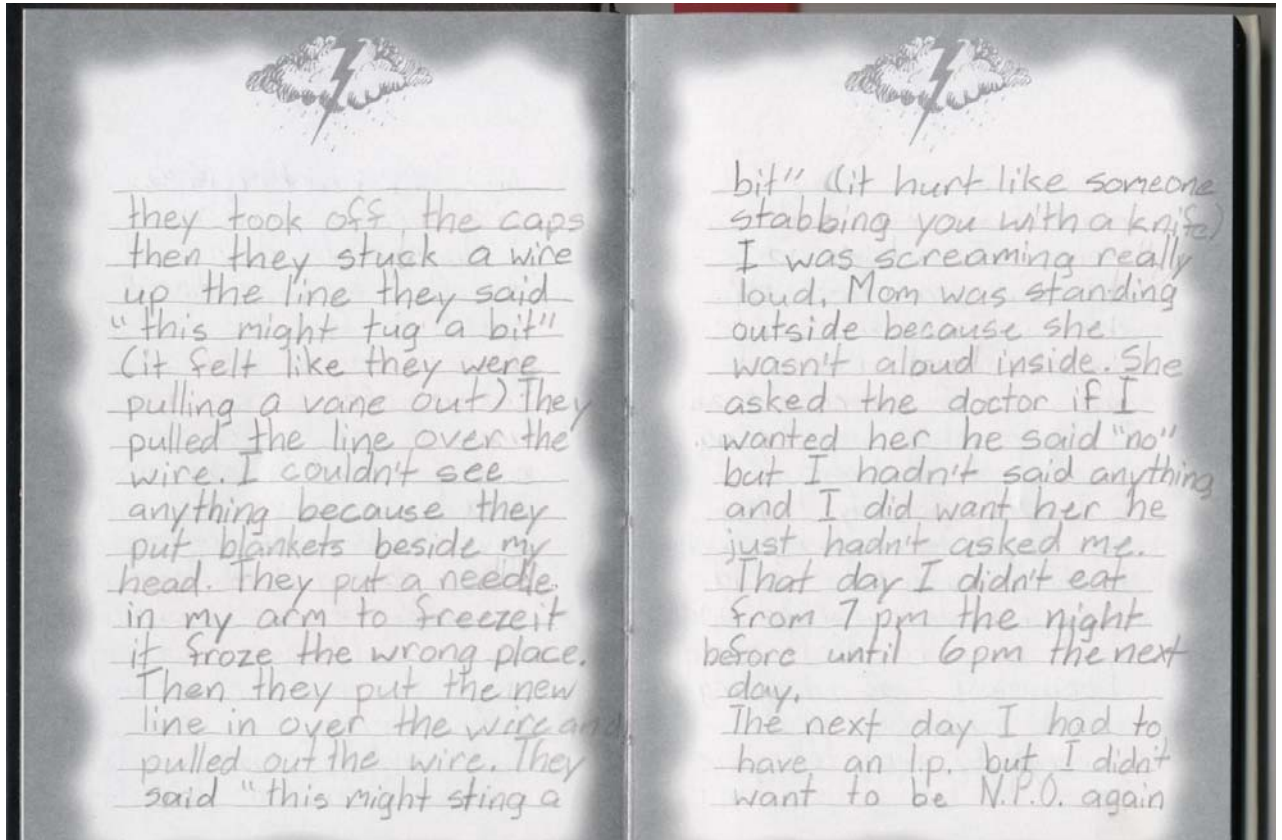 they took off the caps
then they stuck a wire
up the line they said
"this might tug a bit"
(it felt like they were
pulling a vane out) They
pulled the line over the
wire. I couldn't see
anything because they
put blankets beside my
head. They put a needle
in my arm to freeze it
it froze the wrong place.
Then they put the new
line in over the wire and
pulled out the wire. They
said "this might sting a
bit" (it hurt like someone
stabbing you with a knife)
I was screaming really
loud. Mom was standing
outside because she
wasn't aloud inside. She
asked the doctor if I
wanted her he said "no"
but I hadn't said anything
and I did want her he
just hadn't asked me.
That day I didn't eat
from 7 pm the night
before until 6pm the next
day.
The next day I had to
have an l.p. but I didn't
want to be N.P.O. again